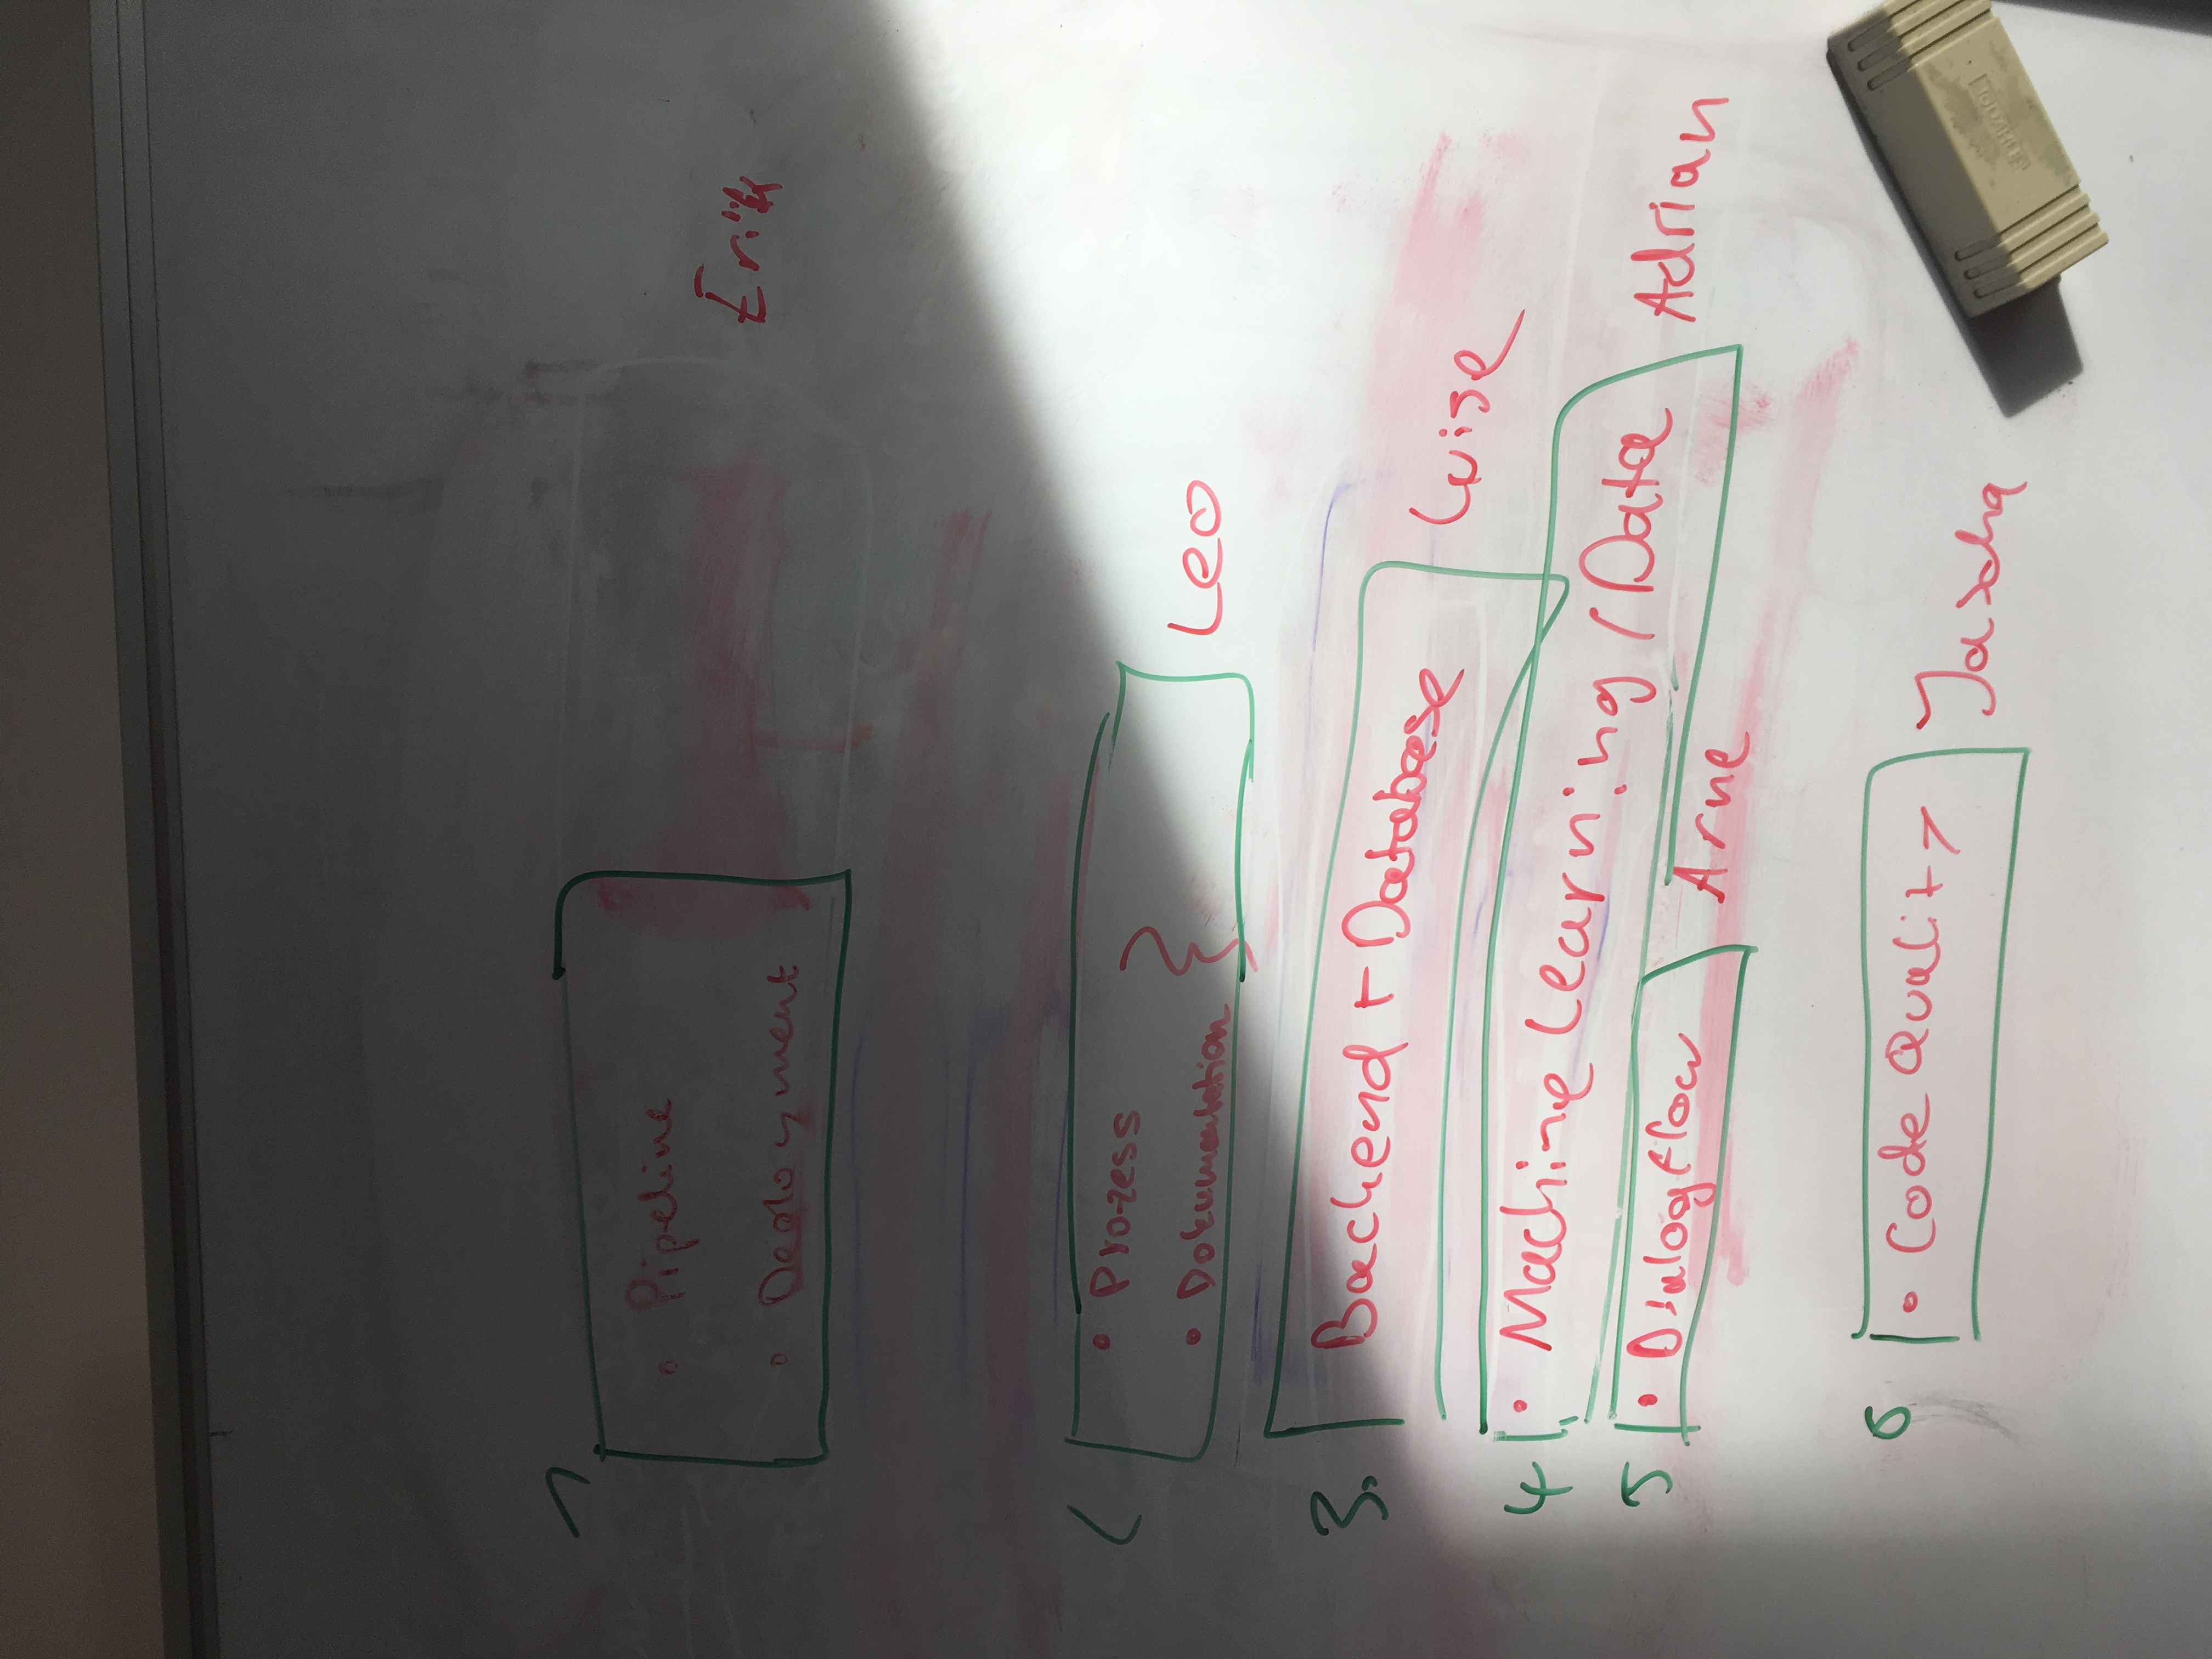 1
• Pipeline
Erik
• Deployment
• Prozess
• Dokumentation } Leo
3. Backend + Database Luise
4 • Machine Learning / Data Adrian
5 • Dialogflow Arne
6 • Code Quality Jascha